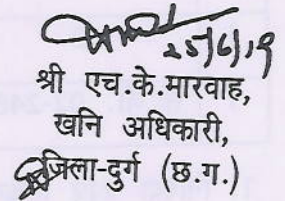 25/6/19
श्री एच.के.मारवाह,
खनि अधिकारी,
जिला-दुर्ग (छ.ग.)